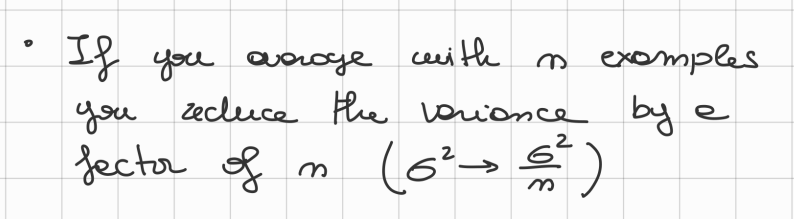 • If you average with n examples
you reduce the variance by a
factor of n (σ² → σ²/n)